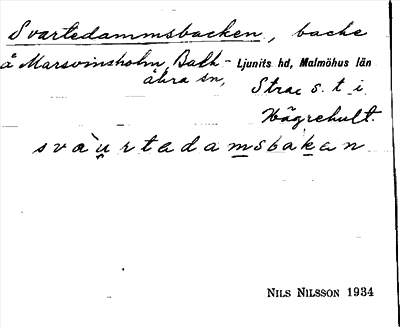 Svartedammsbacken, backe
å Marsvinsholm, Balk- Ljunits hd, Malmöhus län
åkra sn, Strax s. t. i.
Hägrehult.
svàu̯rtadamsbakan
NILS NILSSON 1934